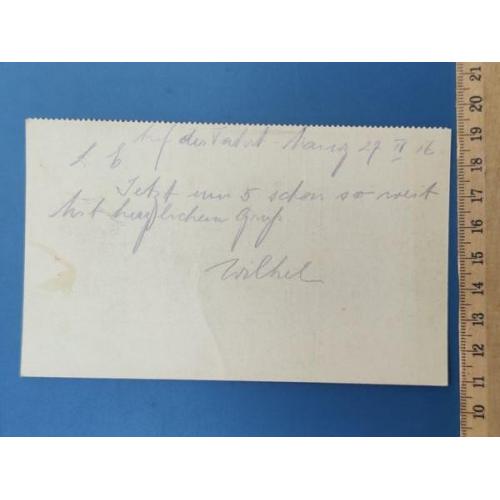 Auf der Fahrt. Mainz 27 IV 16.
L. E
Jetzt um 5 schon so weit
Mit herzlichem Gruß.
Wilhel
21
20
19
18
17
16
15
14
13
12
11
10